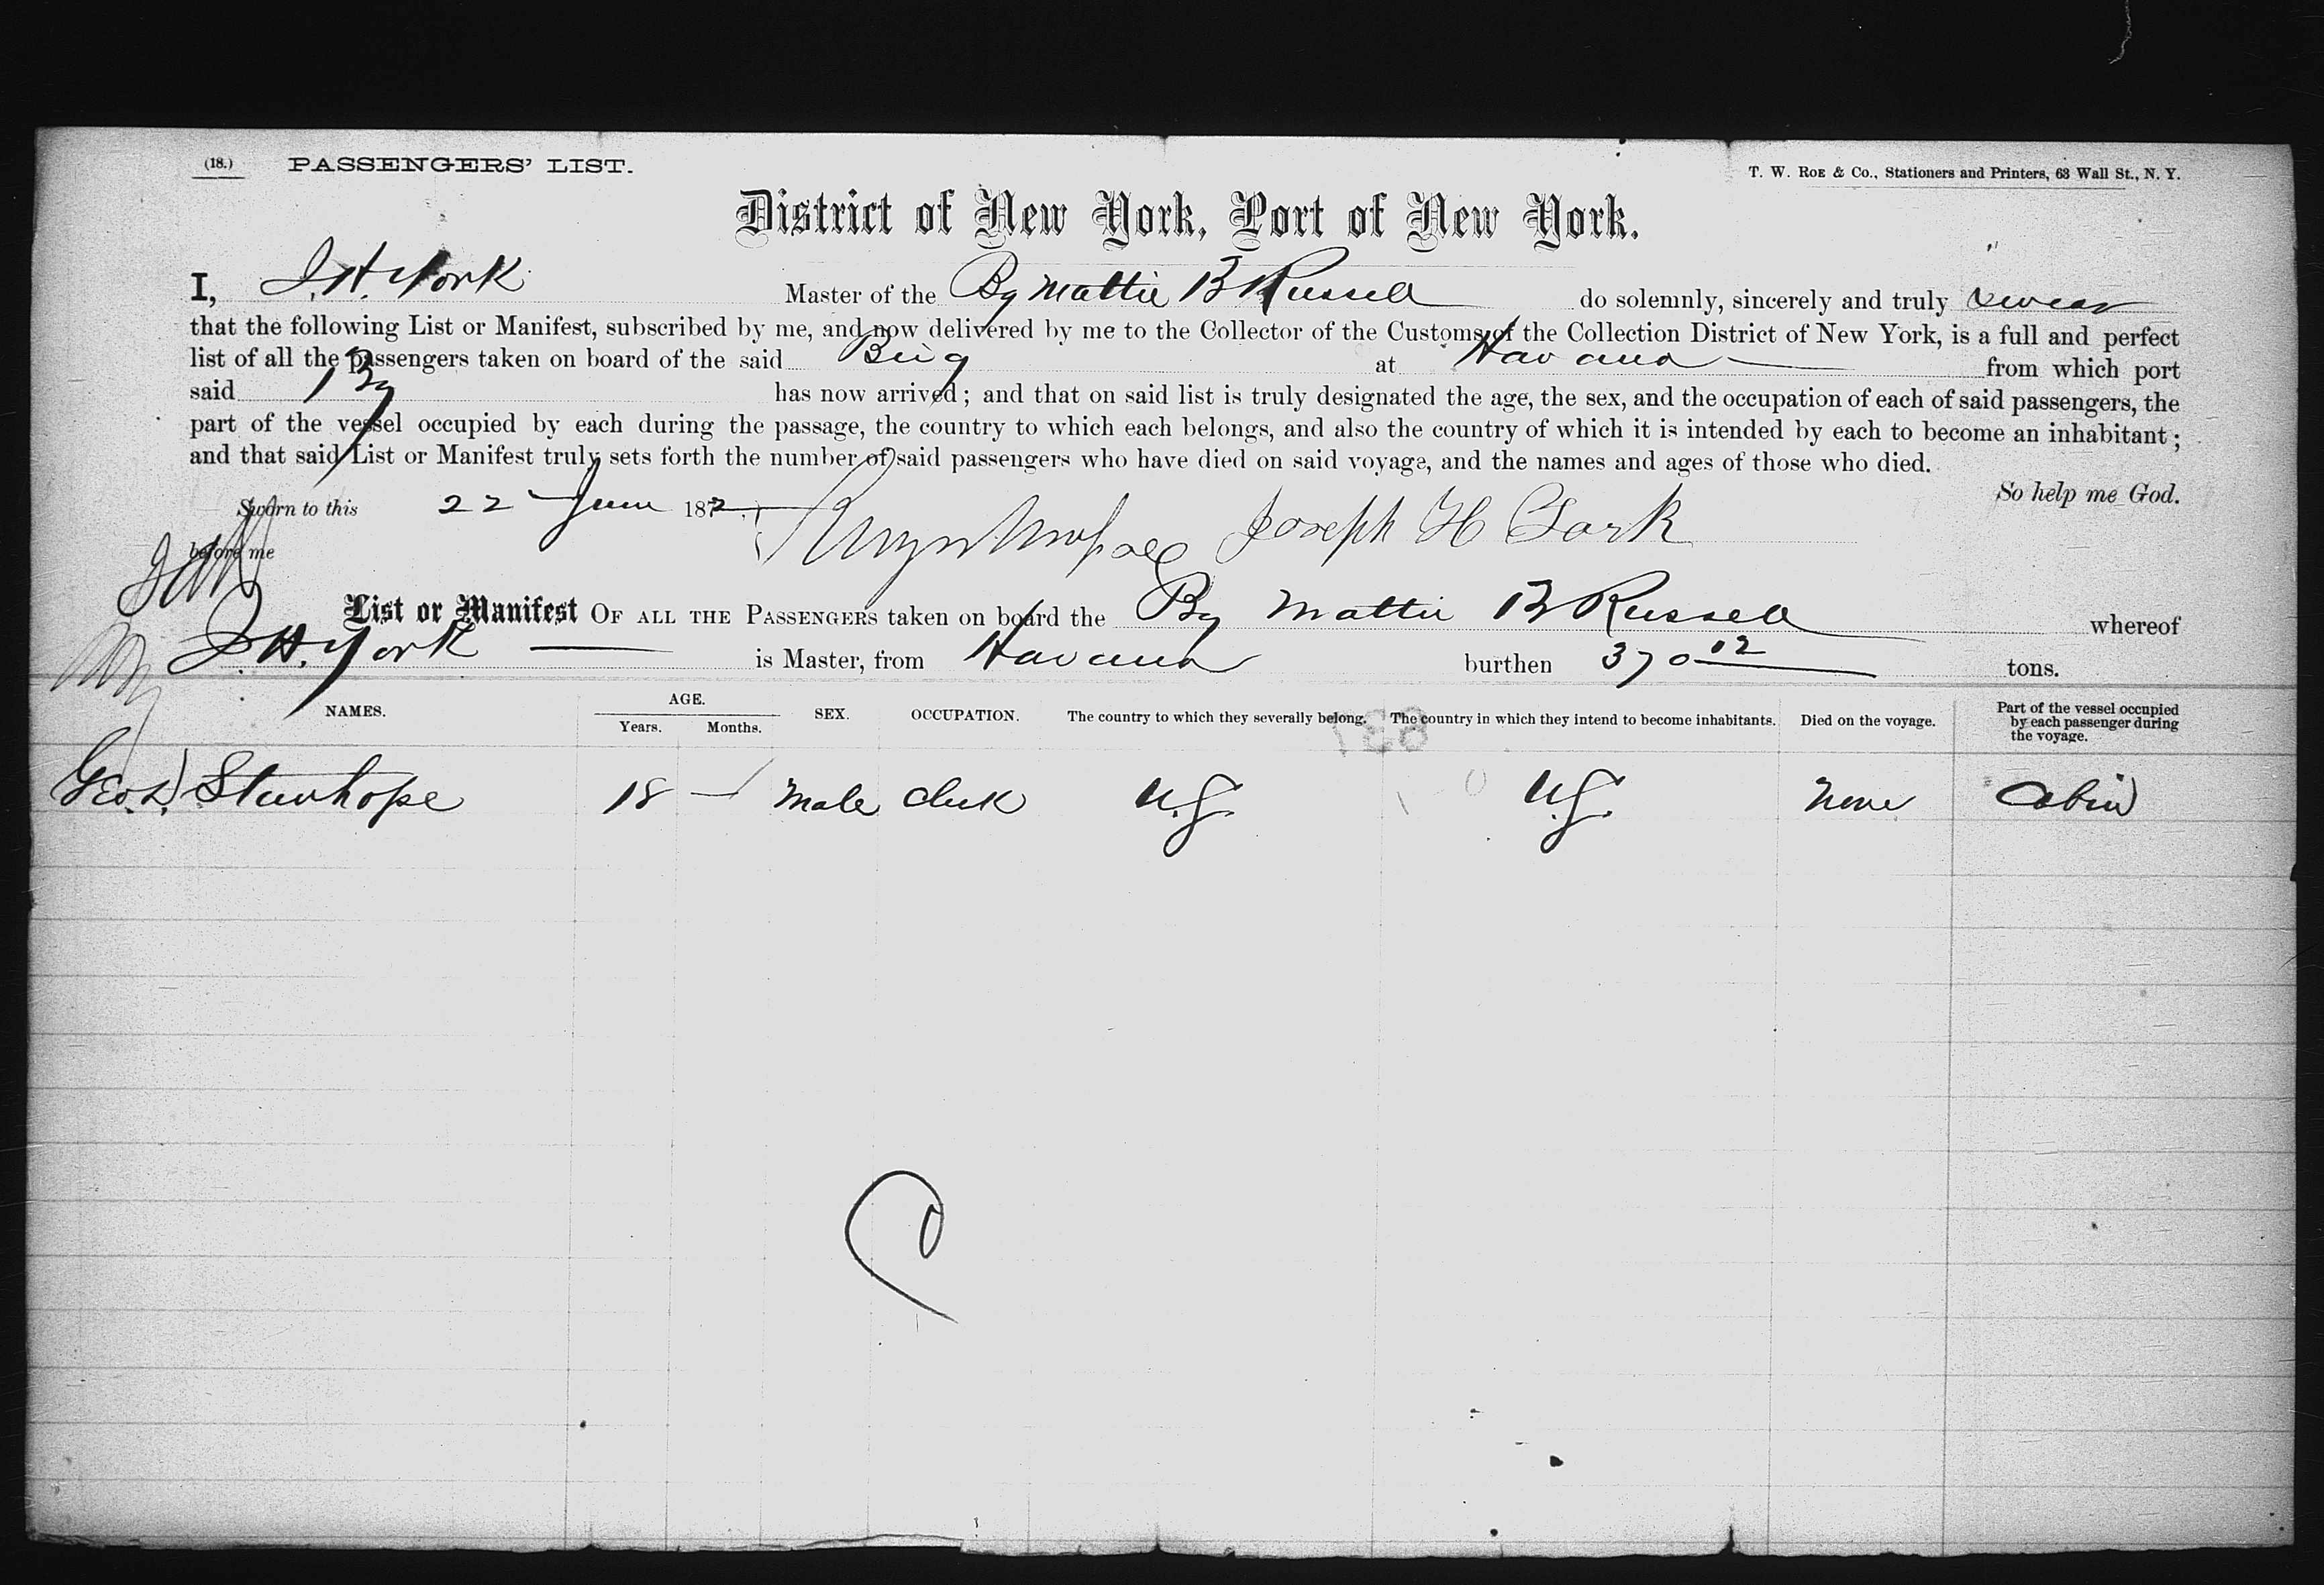 (18.) PASSENGERS' LIST.
T. W. Roe & Co., Stationers and Printers, 63 Wall St., N. Y.
District of New York, Port of New York.
I, J. H. York Master of the Bg Mattie B Russell do solemnly, sincerely and truly swear
that the following List or Manifest, subscribed by me, and now delivered by me to the Collector of the Customs of the Collection District of New York, is a full and perfect
list of all the passengers taken on board of the said Brig at Havana from which port
said Bg has now arrived; and that on said list is truly designated the age, the sex, and the occupation of each of said passengers, the
part of the vessel occupied by each during the passage, the country to which each belongs, and also the country of which it is intended by each to become an inhabitant;
and that said List or Manifest truly sets forth the number of said passengers who have died on said voyage, and the names and ages of those who died.
So help me God.
Sworn to this 22 June 1872 Joseph H
before me
List or Manifest OF ALL THE PASSENGERS taken on board the Bg Mattie B Russell whereof
J. H. York is Master, from Havana burthen 370 02 tons.
NAMES. AGE. Years. Months. SEX. OCCUPATION. The country to which they severally belong. The country in which they intend to become inhabitants. Died on the voyage. Part of the vessel occupied by each passenger during the voyage.
Geo. Stanhope 18 — Male Clerk U.S. U.S. None Cabin